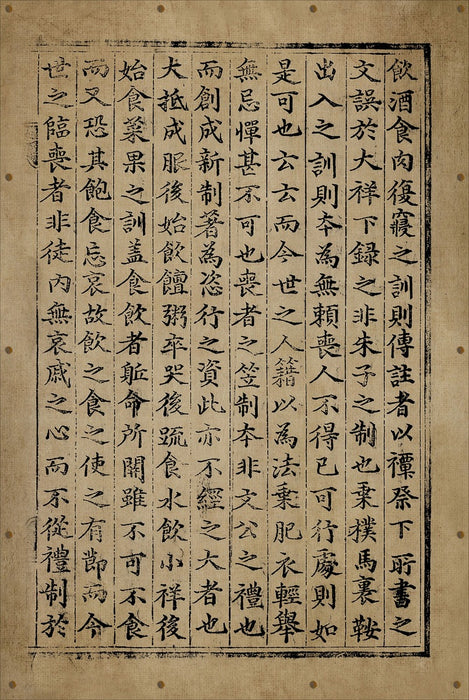 飮酒食肉復寢之訓則傳註者以禫祭下所書之
文誤於大祥下録之非朱子之制也乗樸馬裏鞍
出入之訓則夲為無賴喪人不得已可行處則如
是可也云云而今世之人籍以為法乗肥衣輕舉
無忌憚甚不可也喪者之笠制夲非文公之禮也
而創成新制著為恣行之資此亦不經之大者也
大抵成服後始飮饘粥卒哭後䟽食水飮小祥後
始食菜果之訓盖食飮者軀命所關雖不可不食
而又恐其飽食忘哀故飮之食之使之有節而今
世之臨喪者非徒內無哀戚之心而不從禮制於